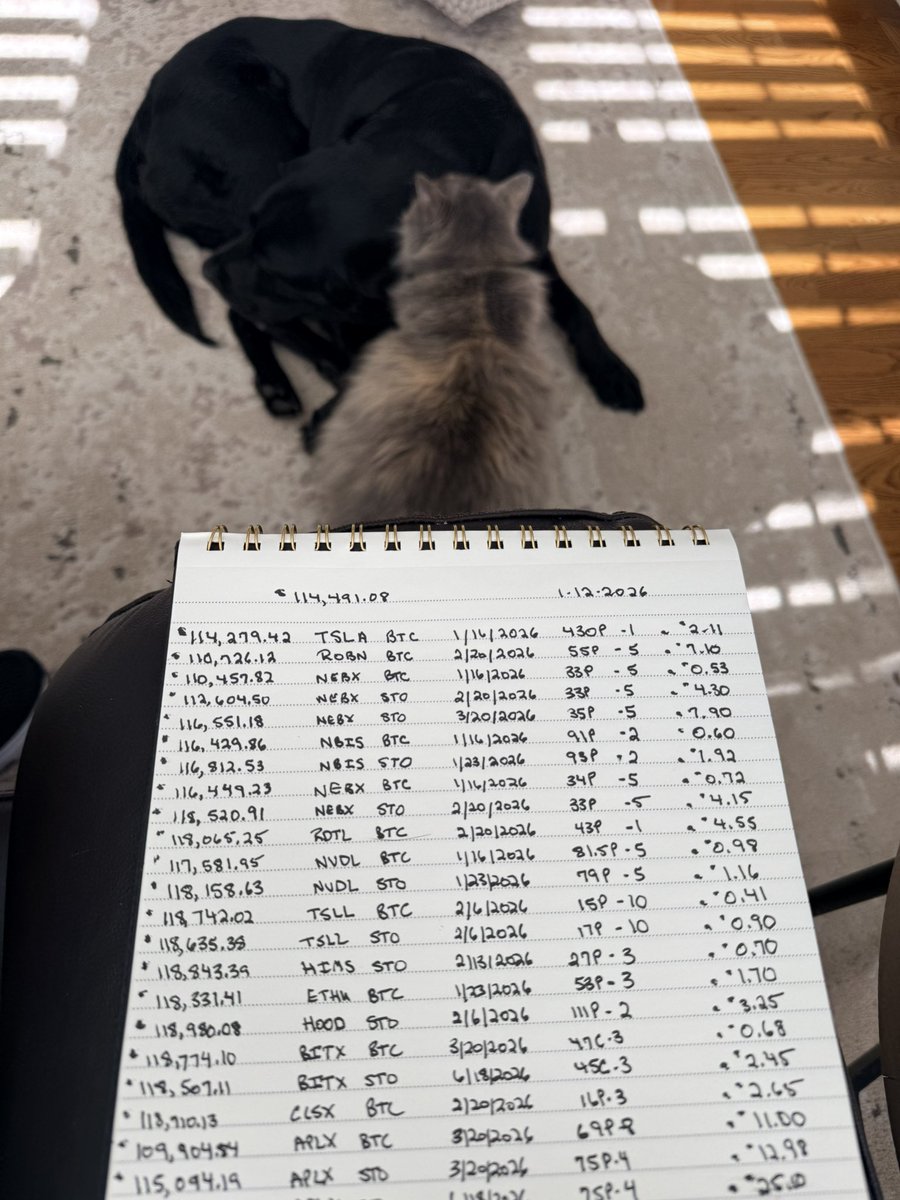 $114,491.08 1-12-2026
$114,279.42 TSLA BTC 1/16/2026 430P -1 $2.11
$110,726.12 ROBN BTC 2/20/2026 55P -5 $7.10
$110,457.82 NEBX BTC 1/16/2026 33P -5 $0.53
$112,604.50 NEBX STO 2/20/2026 33P -5 $4.30
$116,551.18 NEBX STO 3/20/2026 35P -5 $7.90
$116,429.86 NBIS BTC 1/16/2026 91P -2 $0.60
$116,812.53 NBIS STO 1/23/2026 93P -2 $1.92
$116,449.23 NEBX BTC 1/16/2026 34P -5 $0.72
$118,520.91 NEBX STO 2/20/2026 33P -5 $4.15
$118,065.25 RDTL BTC 2/20/2026 43P -1 $4.55
$117,581.95 NVDL BTC 1/16/2026 81.5P -5 $0.98
$118,158.63 NVDL STO 1/23/2026 79P -5 $1.16
$118,742.02 TSLL BTC 2/6/2026 15P -10 $0.41
$118,635.38 TSLL STO 2/6/2026 17P -10 $0.90
$118,843.39 HIMS STO 2/13/2026 27P -3 $0.70
$118,331.41 ETHU BTC 1/23/2026 53P -3 $1.70
$118,980.08 HOOD STO 2/6/2026 111P -2 $3.25
$118,774.10 BITX BTC 3/20/2026 47C -3 $0.68
$118,507.11 BITX STO 6/18/2026 45C -3 $2.45
$118,710.13 CLSX BTC 2/20/2026 16P -3 $2.65
$109,904.84 APLX BTC 3/20/2026 69P -8 $11.00
$115,094.19 APLX STO 3/20/2026 75P -4 $12.98
75P -4